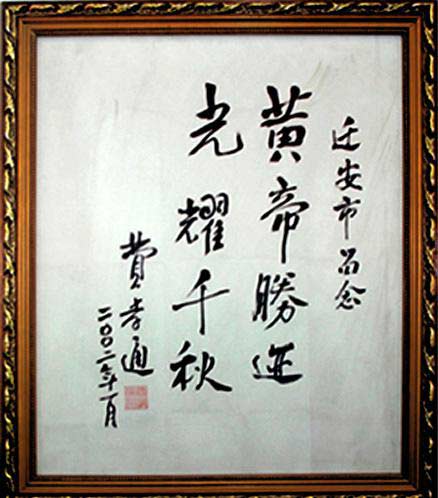 迁安市留念
黄帝勝迹
光耀千秋
费孝通
二〇〇二年一月